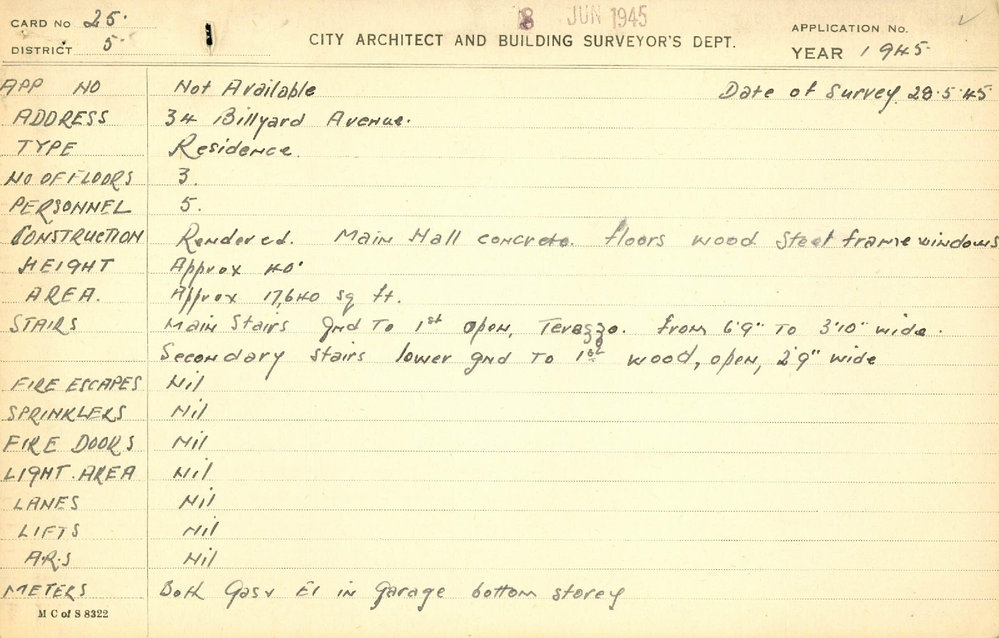 CARD No 25.
8 JUN 1945
APPLICATION No.
DISTRICT 5.
CITY ARCHITECT AND BUILDING SURVEYOR'S DEPT.
YEAR 1945
APP NO Not Available Date of Survey 28.5.45
ADDRESS 34 Billyard Avenue.
TYPE Residence.
NO OF FLOORS 3.
PERSONNEL 5.
CONSTRUCTION Rendered. Main Hall concrete. floors wood Steel frame windows
HEIGHT Approx 40'
AREA. Approx 17,640 sq ft.
STAIRS Main Stairs gnd To 1st open, Terazzo. From 6'9" To 3'10" wide.
Secondary stairs lower gnd To 1st wood, open, 2'9" wide
FIRE ESCAPES Nil
SPRINKLERS Nil
FIRE DOORS Nil
LIGHT. AREA Nil
LANES Nil
LIFTS Nil
A.R.S Nil
METERS Both Gas & El in Garage bottom storey
M C of S 8322